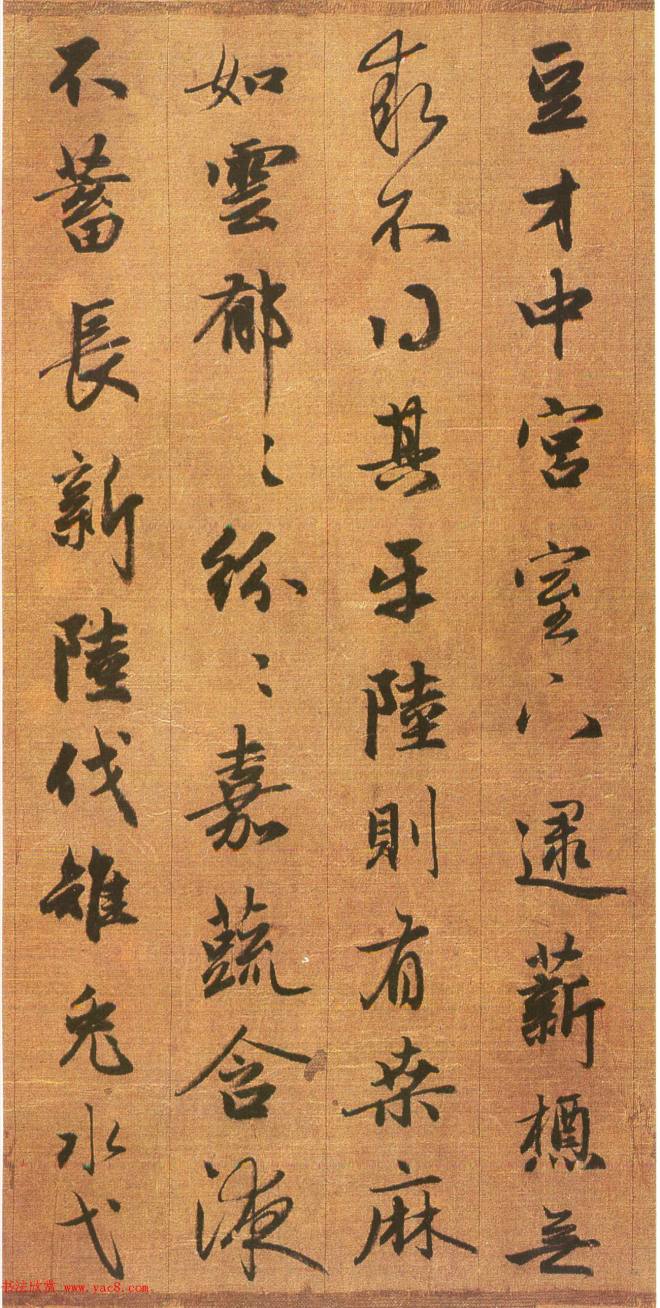 豆才中宮室下逮薪槱無
求不得其平陸則有桑麻
如雲郁〻紛〻嘉蔬含液
不蓄長新陸伐雉兔水弋
书法欣赏 www.yac8.com